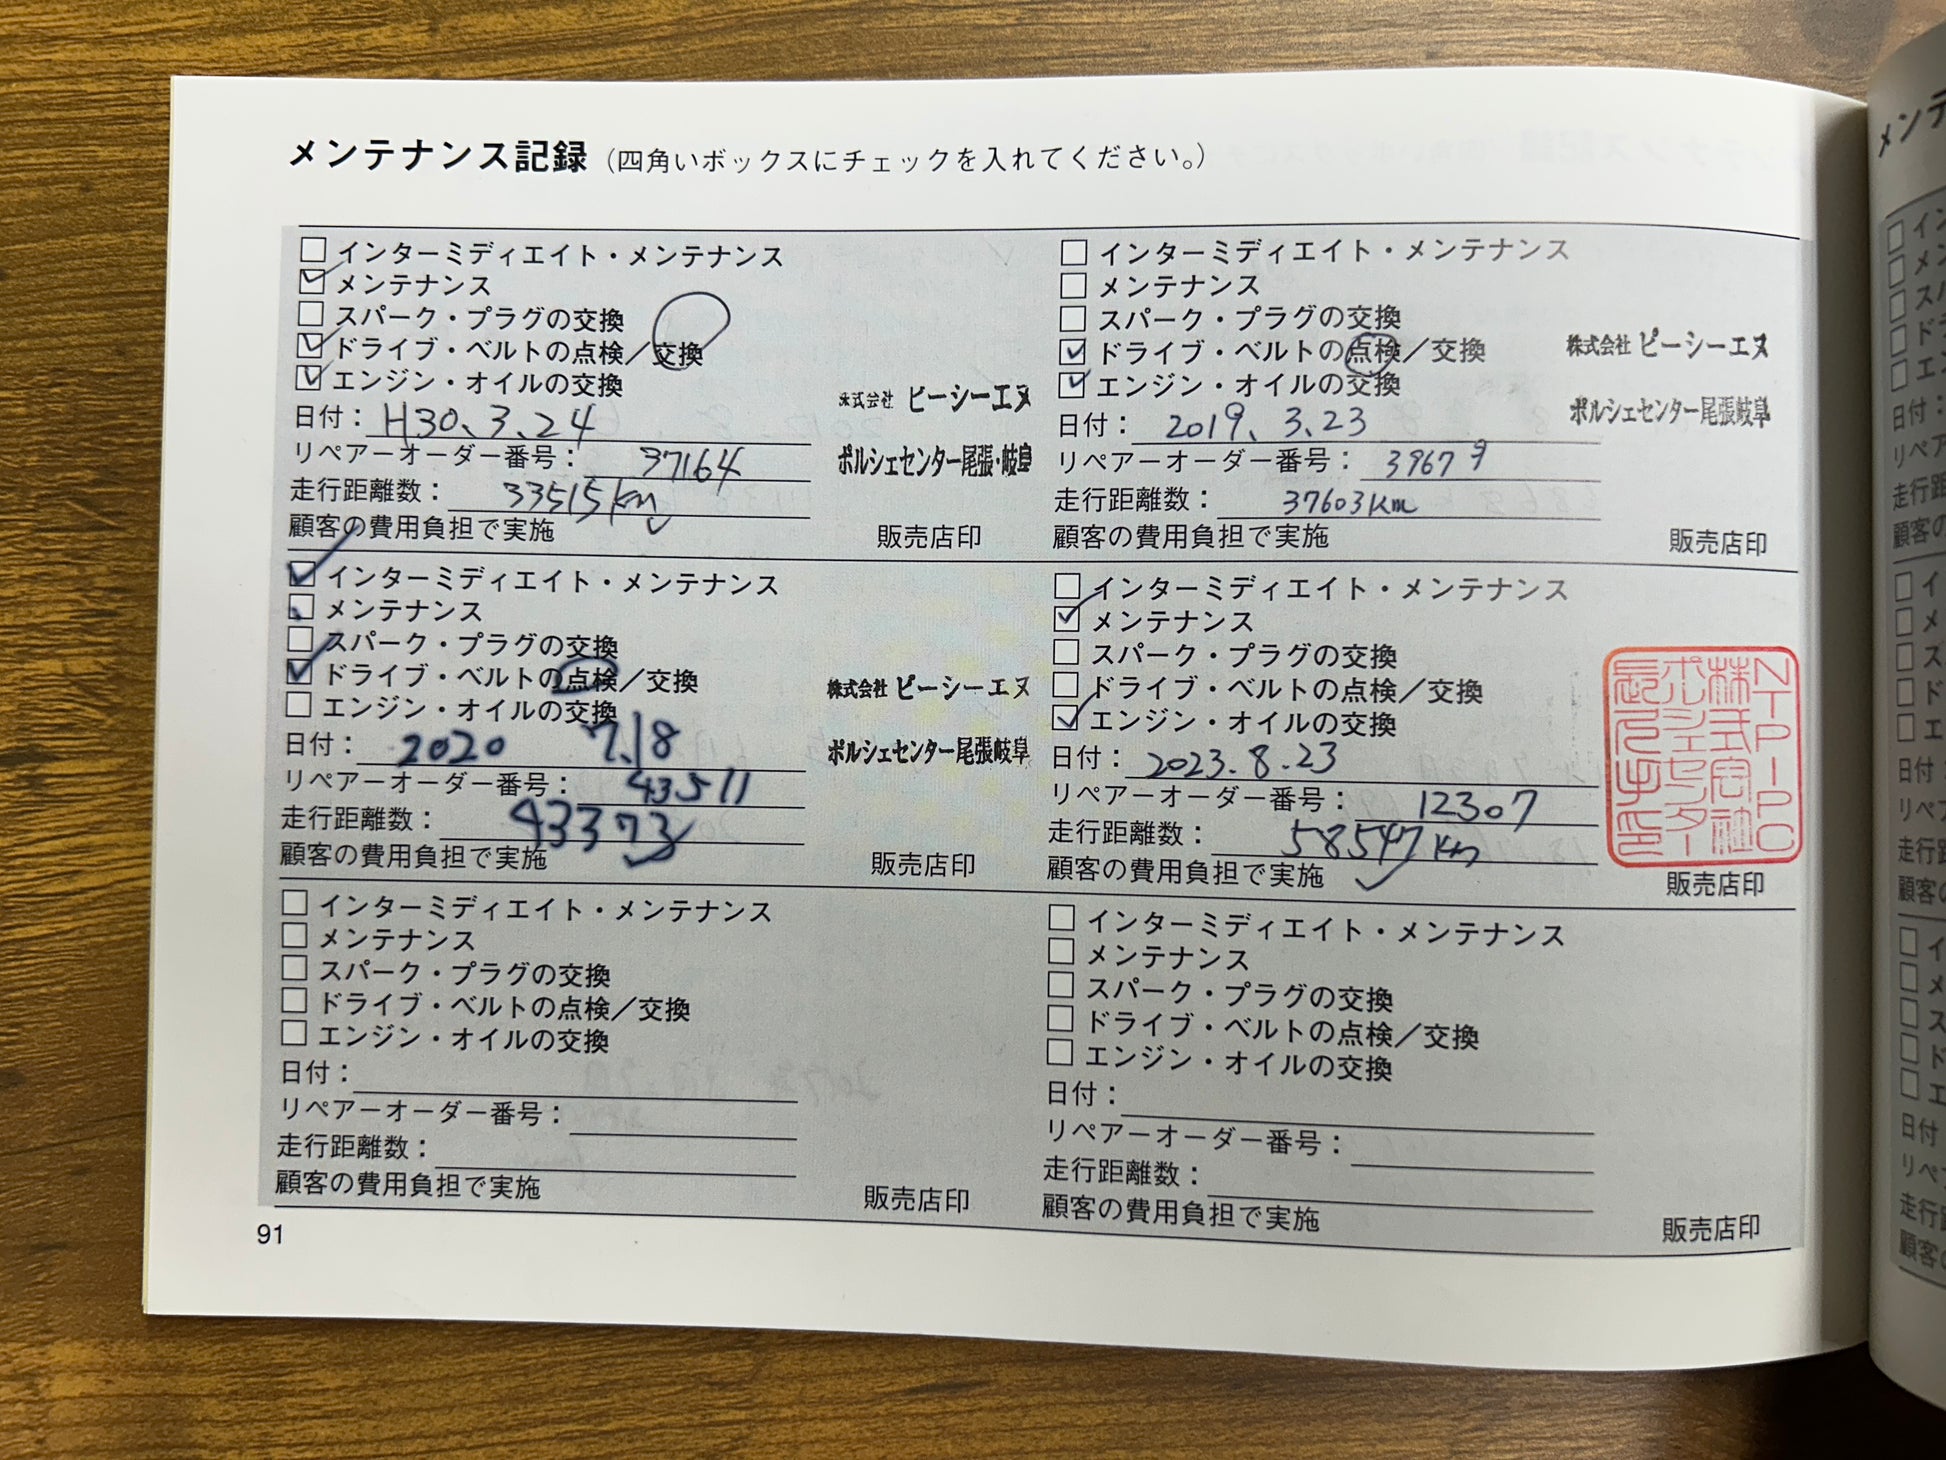 メンテナンス記録（四角いボックスにチェックを入れてください。）
☐ インターミディエイト・メンテナンス
☑ メンテナンス
☐ スパーク・プラグの交換
☑ ドライブ・ベルトの点検／交換
☑ エンジン・オイルの交換
日付： H30、3、24
リペアーオーダー番号： 37164
走行距離数： 33515km
顧客の費用負担で実施
株式会社 ピーシーエヌ
ポルシェセンター尾張・岐阜
販売店印
☐ インターミディエイト・メンテナンス
☐ メンテナンス
☐ スパーク・プラグの交換
☑ ドライブ・ベルトの点検／交換
☑ エンジン・オイルの交換
日付： 2019、3、23
リペアーオーダー番号： 39679
走行距離数： 37603km
顧客の費用負担で実施
株式会社 ピーシーエヌ
ポルシェセンター尾張岐阜
販売店印
☑ インターミディエイト・メンテナンス
☐ メンテナンス
☐ スパーク・プラグの交換
☑ ドライブ・ベルトの点検／交換
☐ エンジン・オイルの交換
日付： 2020 7.18
リペアーオーダー番号： 43511
走行距離数： 43373
顧客の費用負担で実施
株式会社 ピーシーエヌ
ポルシェセンター尾張岐阜
販売店印
☐ インターミディエイト・メンテナンス
☑ メンテナンス
☐ スパーク・プラグの交換
☐ ドライブ・ベルトの点検／交換
☑ エンジン・オイルの交換
日付： 2023.8.23
リペアーオーダー番号： 12307
走行距離数： 58547km
顧客の費用負担で実施
NTPIPC
株式会社
ポルシェセンター
販売店印
☐ インターミディエイト・メンテナンス
☐ メンテナンス
☐ スパーク・プラグの交換
☐ ドライブ・ベルトの点検／交換
☐ エンジン・オイルの交換
日付：
リペアーオーダー番号：
走行距離数：
顧客の費用負担で実施
販売店印
☐ インターミディエイト・メンテナンス
☐ メンテナンス
☐ スパーク・プラグの交換
☐ ドライブ・ベルトの点検／交換
☐ エンジン・オイルの交換
日付：
リペアーオーダー番号：
走行距離数：
顧客の費用負担で実施
販売店印
91